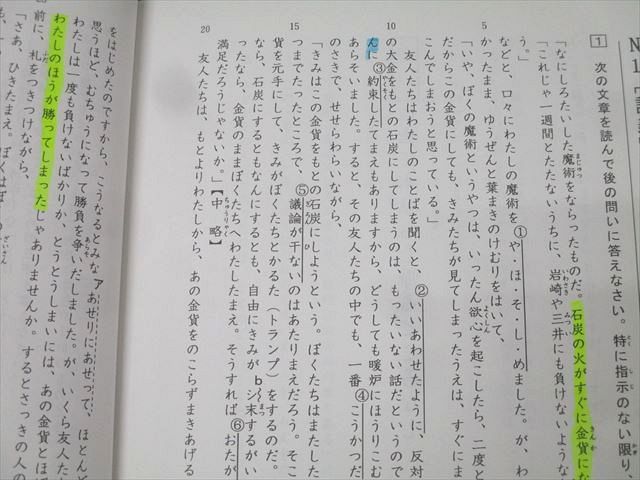 1 次の文章を読んで後の問いに答えなさい。特に指示のない限り、
「なにしろたいした魔術をならったものだ。石炭の火がすぐに金貨にな
「これじゃ一週間とたたないうちに、岩崎や三井にも負けないような
う。」
5 などと、口々にわたしの魔術を①や・ほ・そ・し・めました。が、わ
かったまま、ゆうぜんと葉まきのけむりをはいて、
「いや、ぼくの魔術というやつは、いったん欲心を起こしたら、二度と
だからこの金貨にしても、きみたちが見てしまったうえは、すぐにま
こんでしまおうと思っている。」
10 友人たちはわたしのことばを聞くと、②いいあわせたように、反対
の大金をもとの石炭にしてしまうのは、もったいない話だというので
んに③約束したてまえもありますから、どうしても暖炉にほうりこむ
あらそいました。すると、その友人たちの中でも、一番④こうかつだ
のさきで、せせらわらいながら、
15 「きみはこの金貨をもとの石炭にしようという。ぼくたちはまたした
つまでたったところで、⑤議論が干ないのはあたりまえだろう。そこ
貨を元手にして、きみがぼくたちとかるた(トランプ)をするのだ。
なら、石炭にするともなんにするとも、自由にきみがbシ末するがい
ったなら、金貨のままぼくたちへわたしたまえ。そうすれば⑥おたが
満足だろうじゃないか。」【中略】
20 友人たちは、もとよりわたしから、あの金貨をのこらずまきあげる
をはじめたのですから、こうなるとみなアあせりにあせって、ほとん
思うほど、むちゅうになって勝負を争いだしました。が、いくら友人た
わたしは一度も負けないばかりか、とうとうしまいには、あの金貨とほ
わたしのほうが勝ってしまったじゃありませんか。するとさっきの人の
前に、札をつきつけながら、
「さあ、ひきたまえ。ぼくはぼ